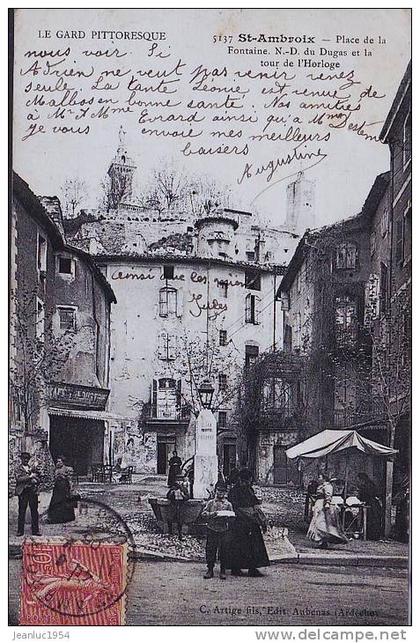 LE GARD PITTORESQUE
5137 St-Ambroix — Place de la
Fontaine. N.-D. du Dugas et la
tour de l'Horloge
nous voir. Si
Adrien ne veut pas venir venez
seule. La tante Leonie est venue de
Malbos en bonne santé. Nos amitiés
à Mr et Mme Evrard ainsi qu'a Mme
je vous envoie mes meilleurs
baisers
Augustine
ainsi que les
Jules
C. Artige fils, Edit. Aubenas (Ardèche)
jeanluc1954
© delcampe.net